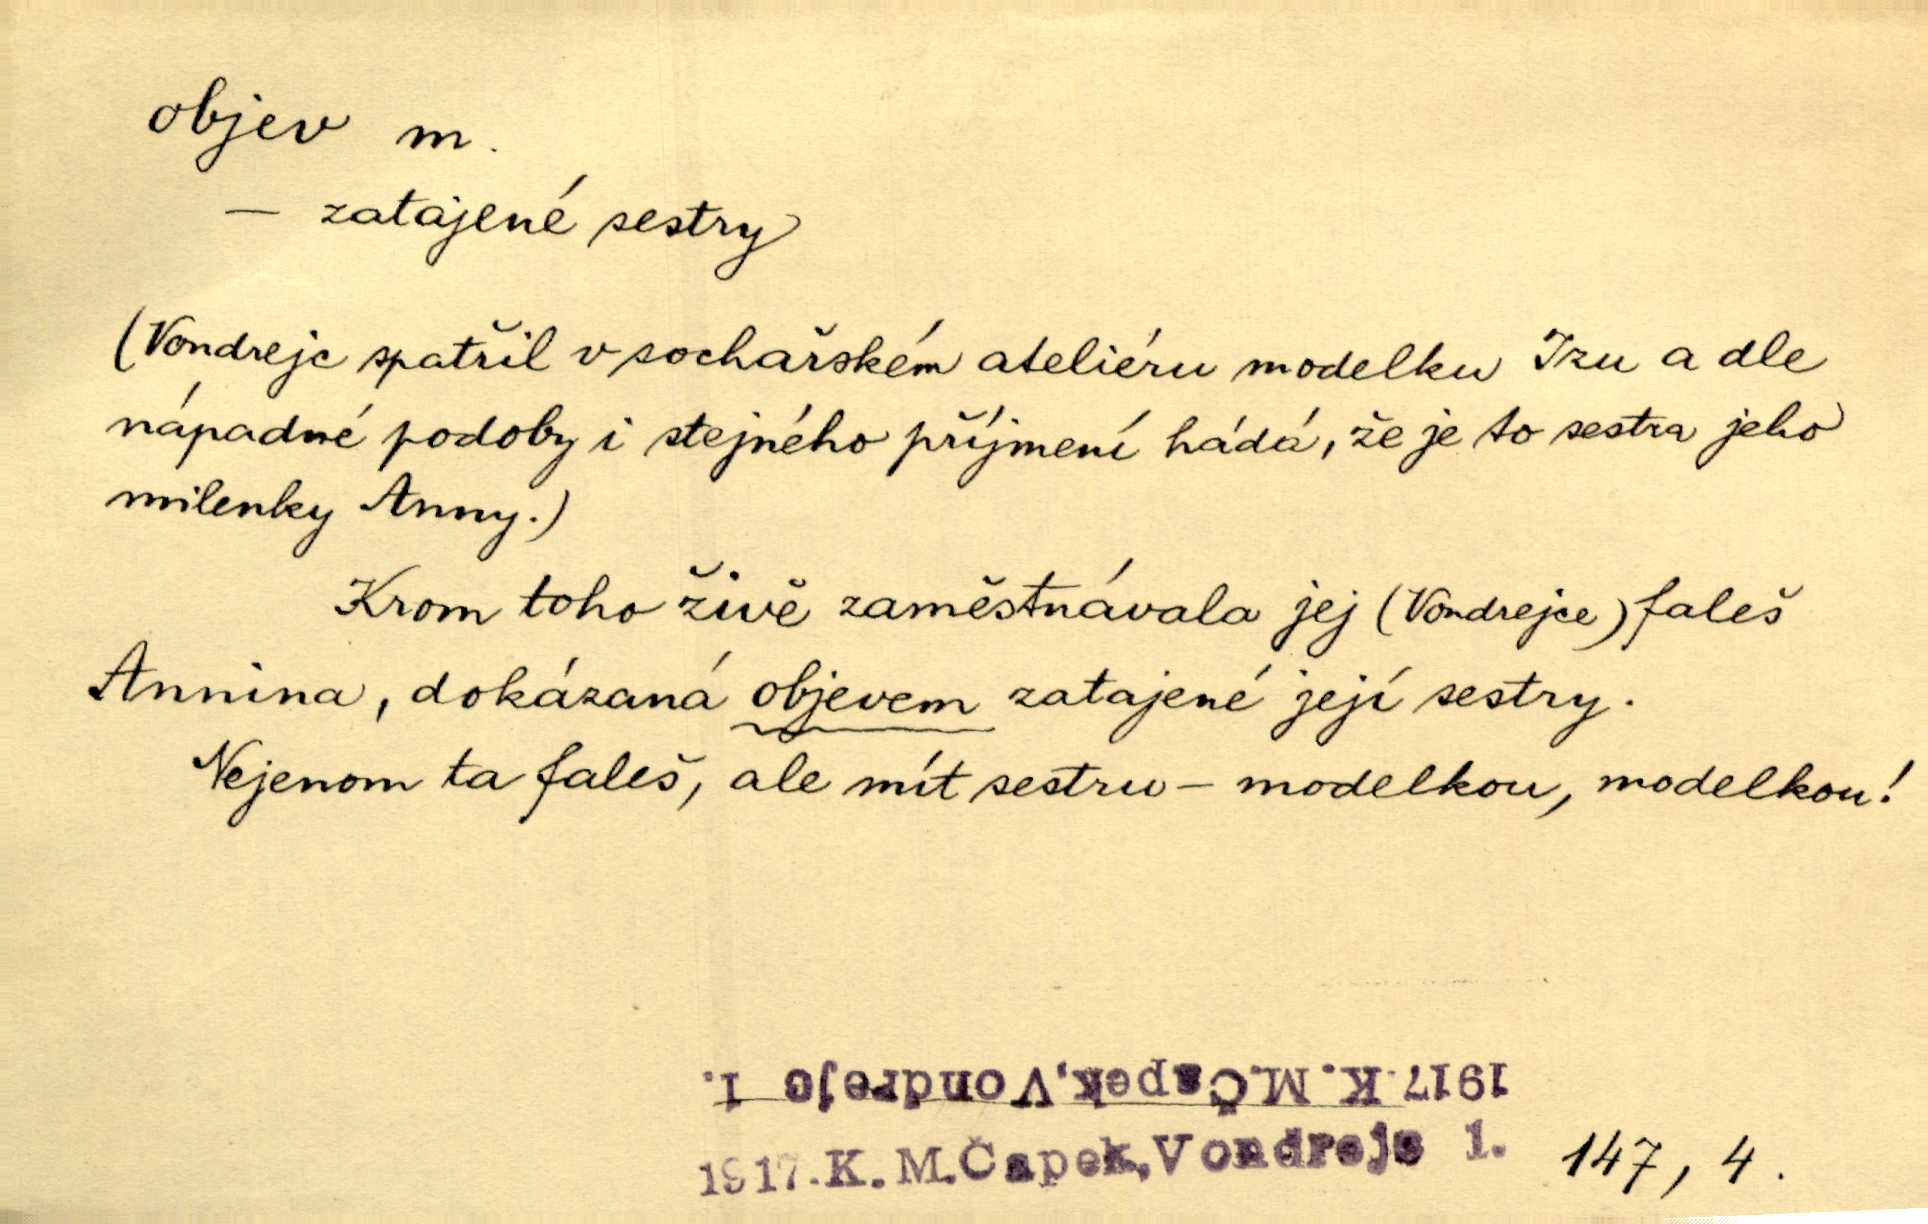 objev m.
— zatajené sestry
(Vondrejc spatřil v sochařském ateliéru modelku Izu a dle
nápadné podoby i stejného příjmení hádá, že je to sestra jeho
milenky Anny.)
Krom toho živě zaměstnávala jej (Vondrejce) faleš
Annina, dokázaná objevem zatajené její sestry.
Nejenom ta faleš, ale mít sestru – modelkou, modelkou!
1917. K. M. Čapek, Vondrejc I.
1917. K. M. Čapek, Vondrejc 1. 147, 4.